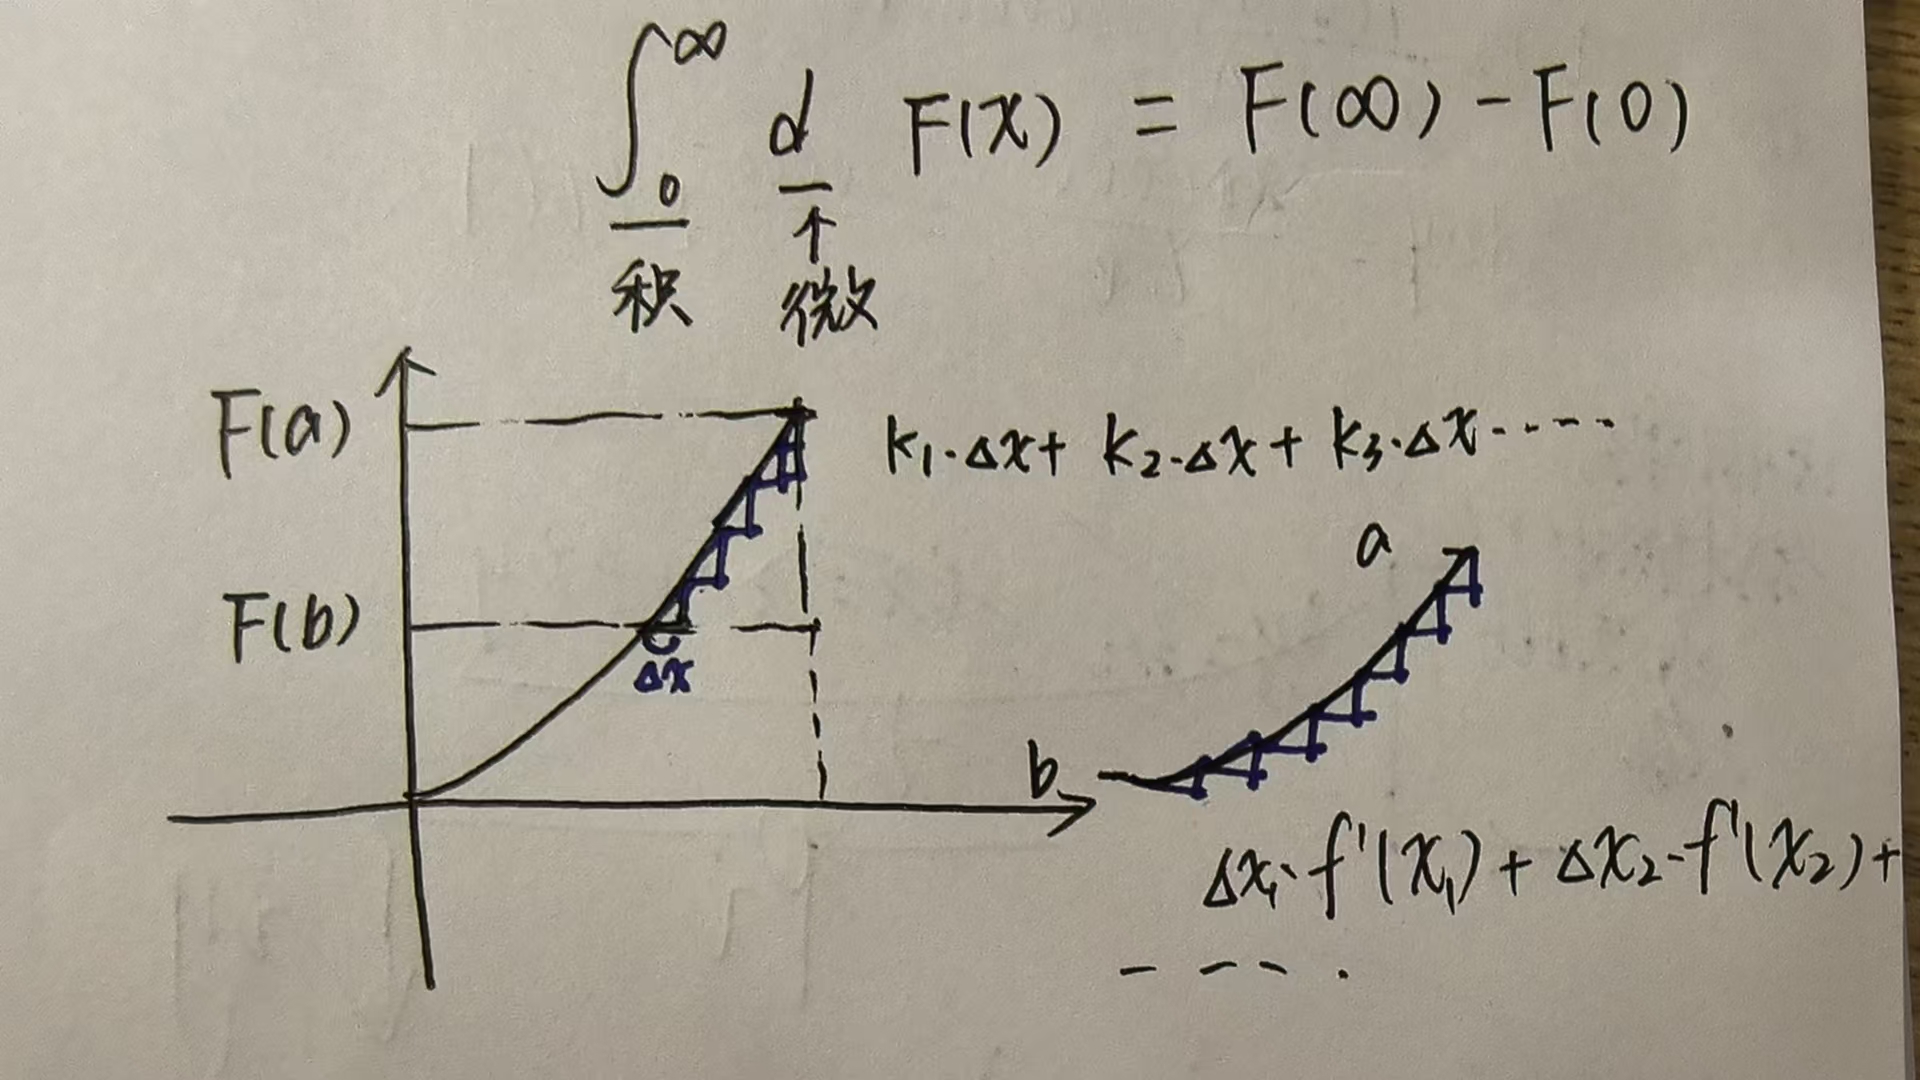 ∫₀^∞ d F(x) = F(∞) - F(0)
积 微
F(a)
k₁·Δx + k₂·Δx + k₃·Δx·····
a
F(b)
Δx
b
Δx₁·f'(x₁) + Δx₂·f'(x₂) +
- - - - .